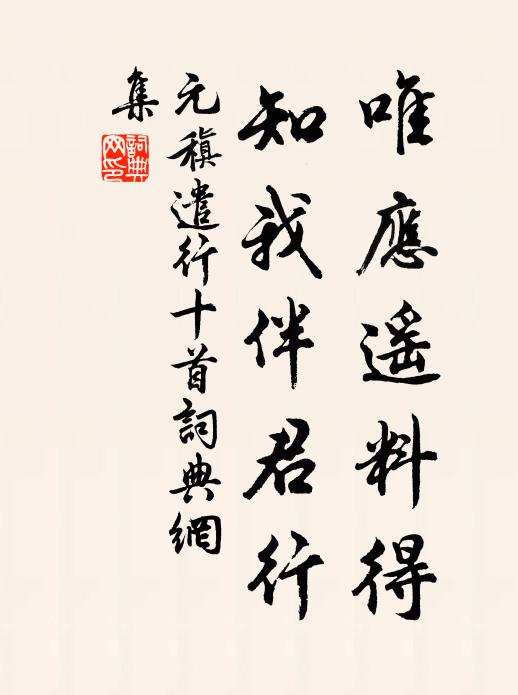 唯應遥料得
知我伴君行
元稹遣行十首詞典網
集
詞典網印